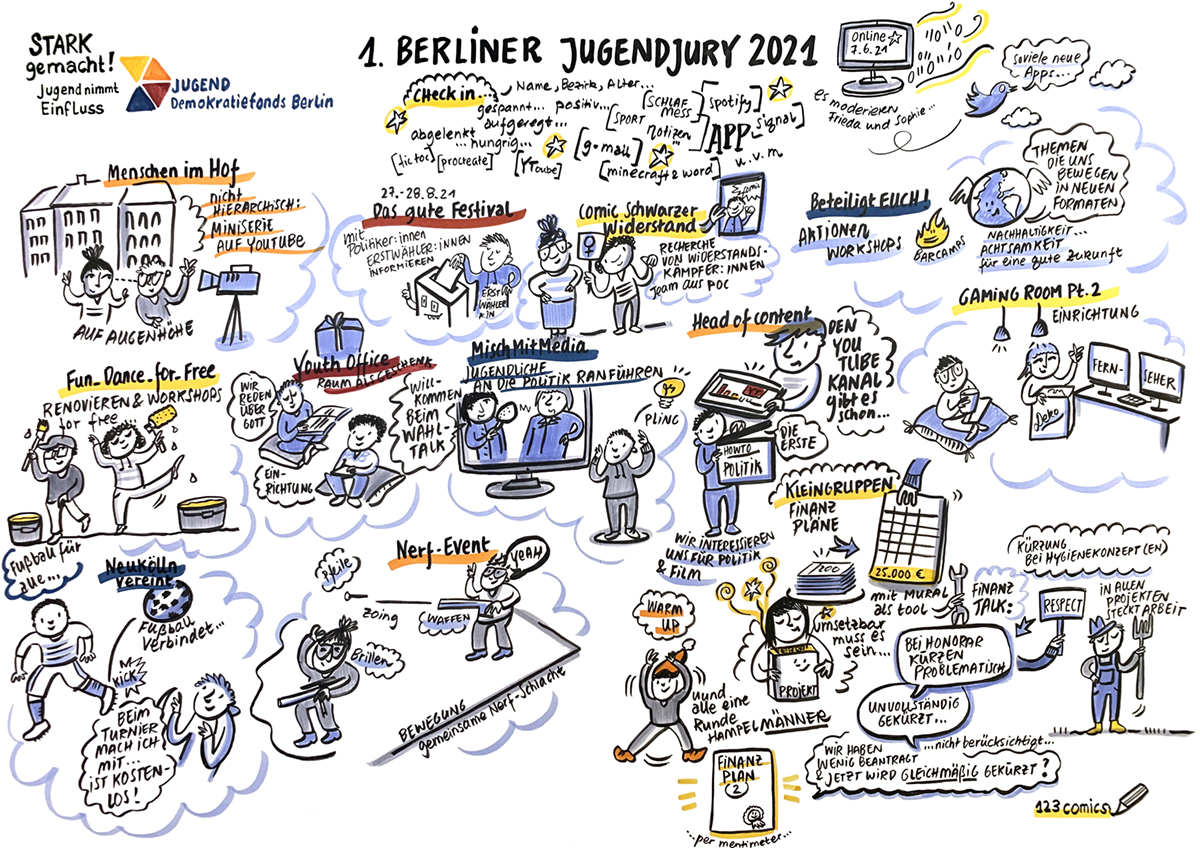 STARK
gemacht!
Jugend nimmt
Einfluss
JUGEND
Demokratiefonds Berlin
1. BERLINER JUGENDJURY 2021
Online
7.6.21
es moderieren
Frieda und Sophie...
soviele neue
Apps...
Check in...
Name, Bezirk, Alter...
gespannt... positiv...
aufgeregt...
abgelenkt
... hungrig...
[tic toc]
[procreate]
[YToube]
[SPORT
[SCHLAF
MESS
Notizen
[g-mail]
[minecraft & word]
[spotify]
APP
signal]
u.v.m
Menschen im Hof
nicht
HIERARCHISCH:
MINISERIE
AUF YOUTUBE
AUF AUGENHÖHE
27.-28.8.21
Das gute Festival
mit
Politiker:innen
ERSTWÄHLER:INNEN
INFORMIEREN
ERST
WÄHLER
*IN
Comic Schwarzer
Widerstand
RECHERCHE
VON WIDERSTANDS-
KÄMPFER:INNEN
Team aus POC
Beteiligt EUCH!
AKTIONEN
WORKSHOPS
BARCAMPS
THEMEN
DIE UNS
BEWEGEN
IN NEUEN
FORMATEN
NACHHALTIGKEIT...
ACHTSAMKEIT
für eine gute Zukunft
Fun_Dance_for_Free
RENOVIEREN & WORKSHOPS
for free
Youth Office
RAUM ALS GESCHENK
WIR
REDEN
ÜBER
GOTT
EIN-
RICHTUNG
WILL-
KOMMEN
BEIM
WAHL-
TALK
MischMitMedia
JUGENDLICHE
AN DIE POLITIK RANFÜHREN
PLING
Head of content
DEN
YOU
TUBE
KANAL
gibt es
schon...
DIE
ERSTE
HOWTO
POLITIK
WIR INTERESSIEREN
UNS FÜR POLITIK
& FILM
GAMING ROOM Pt. 2
EINRICHTUNG
Deko
FERN-
SEHER
KLEINGRUPPEN
FINANZ
PLÄNE
200
25.000 €
mit MURAL
als tool
Fußball für
alle...
Neukölln
vereint
FUßBALL
VERBINDET...
KICK
BEIM
TURNIER
MACH ICH
MIT...
IST KOSTEN-
LOS!
Nerf-Event
Pfeile
zoing
WAFFEN
YEAH
Brillen
BEWEGUNG
gemeinsame Nerf-Schlacht
WARM
UP
uund
alle eine
Runde
HAMPELMÄNNER
PROJEKT
umsetzbar
muss es
sein...
FINANZ
PLAN
2
...per mentimeter...
FINANZ
TALK:
RESPECT
KÜRZUNG
BEI HYGIENEKONZEPT(EN)
IN ALLEN
PROJEKTEN
STECKT ARBEIT
BEI HONORAR
KÜRZEN
PROBLEMATISCH
UNVOLLSTÄNDIG
GEKÜRZT...
...nicht berücksichtigt...
WIR HABEN
WENIG BEANTRAGT
& JETZT WIRD GLEICHMÄßIG GEKÜRZT?
123comics